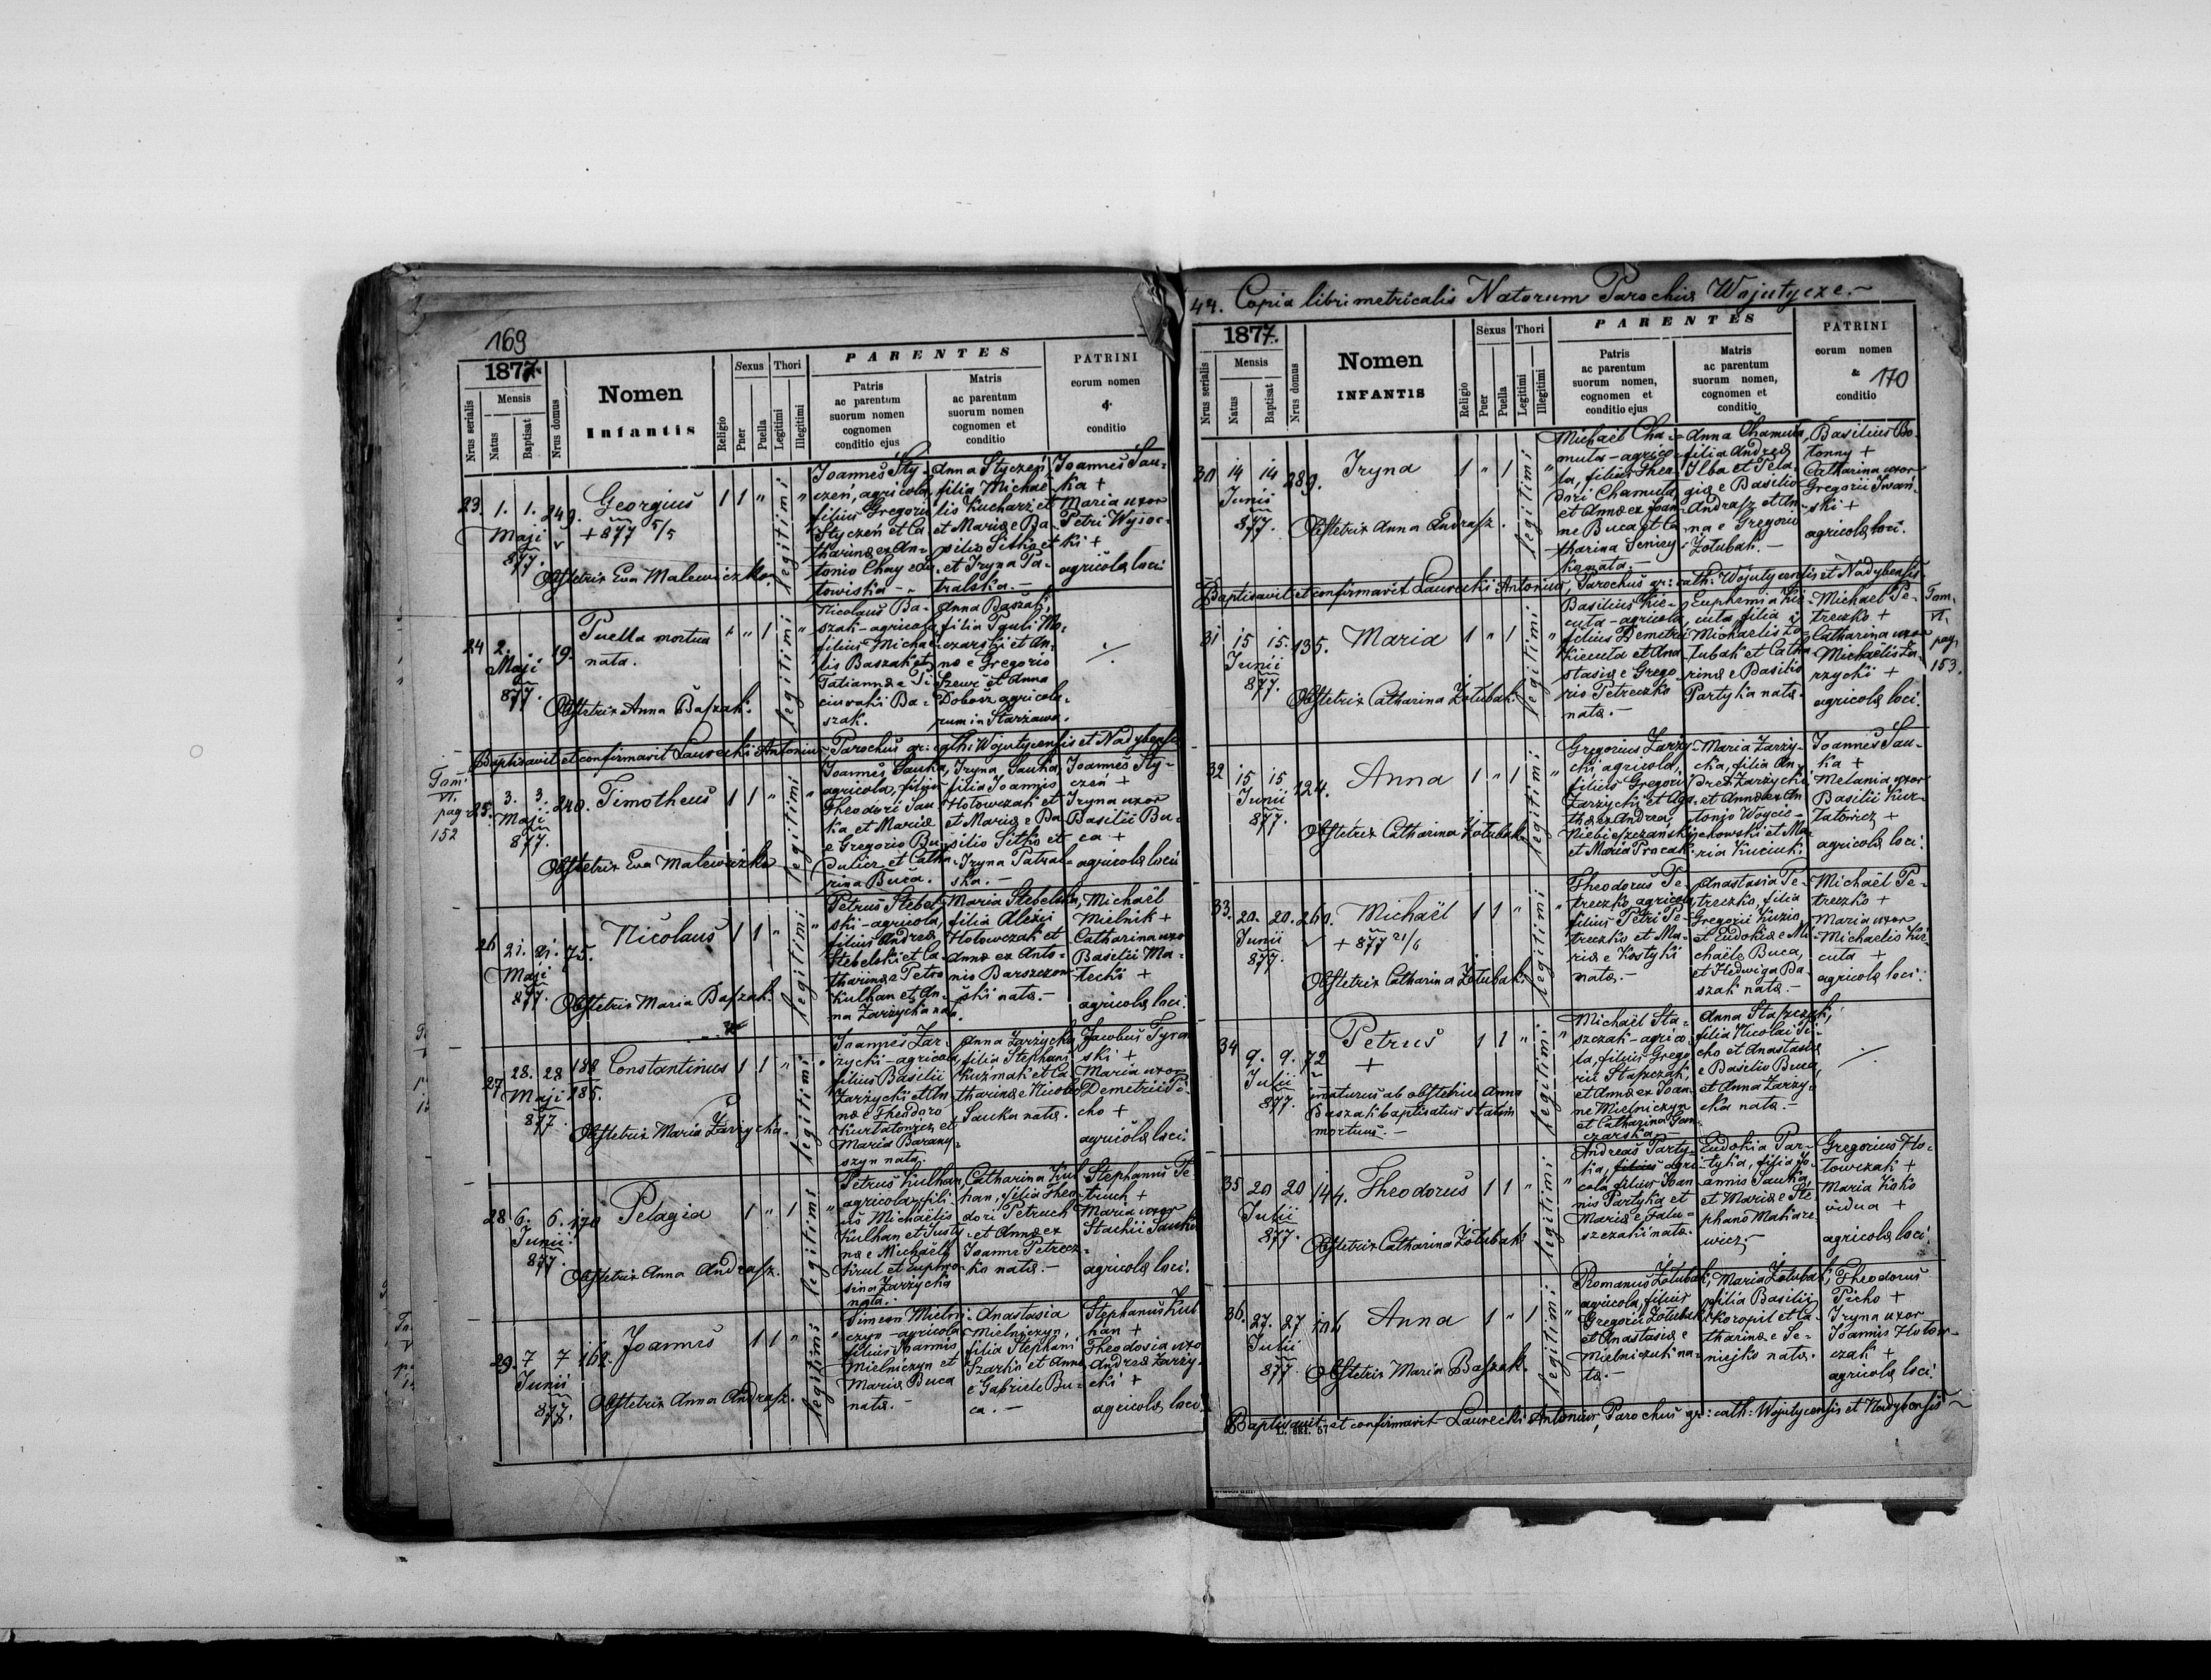 169
1877.
Nrus serialis
Mensis
Natus
Baptisat
Nrus domus
Nomen
Infantis
Religio
Sexus
Puer
Puella
Thori
Legitimi
Illegitimi
PARENTES
Patris
ac parentum
suorum nomen
cognomen
conditio ejus
Matris
ac parentum
suorum nomen
cognomen et
conditio
PATRINI
eorum nomen
&
conditio
23. 1. 1. 249.
Maji
877.
Georgius
+ 877 5/5
Obstetrix Eva Malewiczko.
1 1 "
legitimi
"
Joannes Sty-
czeń, agricola,
filius Gregorii
Styczeń et Ca-
tharinæ ex An-
tonio Chay et
towiska -
Anna Styczeń
filia Michae-
lis Kucharz et
et Mariæ e Ba-
silio Sitko et
et Iryna Pa-
tralska. -
Joannes Sau-
ka +
Maria uxor
Petri Wysoc-
ki +
agricolæ loci
24 2. 19.
Maji
877.
Puella mortua
nata.
Obstetrix Anna Baszak.
1 " 1
legitimi
Nicolaus Ba-
szak - agricola,
filius Michae-
lis Baszak et
Tatiannæ e
Ba-
szak.
Anna Baszak,
filia Pauli Mo-
czarski et An-
næ e Gregorio
Szewc et Anna
Dobosz agricola-
rum in Starzawa.
./.
Baptisavit et confirmavit Laurecki Antonius Parochus gr: cath: Wojutycensis et Nadybensis
Tom:
VI.
pag
152
25. 3. 3. 240.
Maji
877.
Timotheus
Obstetrix Eva Malewiczko
1 1 "
legitimi
"
Joannes Sauka,
agricola, filius
Theodori Sau-
ka et Mariæ
e Gregorio Bu-
dulicz et Catha-
rina Buca.
Iryna Sauka,
filia Joannis
Hotowczak et
et Mariæ e Ba-
silio Sitko et
Iryna Patral-
ska. -
Joannes Sty-
czeń +
Iryna uxor
Basilii Bu-
ca +
agricolæ loci
26 21. 21. 75.
Maji
877.
Nicolaus
Obstetrix Maria Baszak.
1 1 "
legitimi
"
Petrus Stebel-
ski - agricola,
filius Andreæ
Stebelski et Ca-
tharinæ e Petro
Kulhan et An-
na Zarzycka nata.
Maria Stebelska,
filia Alexii
Hotowczak et
Annæ ex Anto-
nio Barszczow-
ski nata. -
Michaël
Mielnik +
Catharina uxor
Basilii Ma-
techi +
agricolæ loci.
27 28. 28 188
185.
Maji
877.
Constantinus
Obstetrix Maria Zarzycka.
1 1 "
legitimi
"
Joannes Zar-
zycki - agricola,
filius Basilii
Zarzycki et An-
næ e Theodoro
Kurtatowicz et
Maria Barany-
szyn nata.
Anna Zarzycka,
filia Stephani
Kuźmak et Ca-
tharinæ e Nicolao
Sauka nata.
Jacobus Tyran-
ski +
Maria uxor
Demetrii Pi-
cho +
agricolæ loci.
28 6. 6. 170
Junii
877.
Pelagia
Obstetrix Anna Andrasz.
1 " 1
legitimi
"
Petrus Kulhan,
agricola, fili-
us Michaëlis
Kulhan et Justy-
næ e Michaële
Krul et Euphro-
sina Zarzycka
nata.
Catharina Kul-
han, filia Theo-
dori Petruch
et Annæ ex
Joanne Petrecz-
ko nata. -
Stephanus Pe-
truch +
Maria uxor
Stachii Sauka
agricolæ loci.
29. 7 7 160.
Junii
877.
Joannes
Obstetrix Anna Andrasz.
1 1 "
legitimi
"
Simeon Mielni-
czyn - agricola
filius Joannis
Mielniczyn et
Mariæ Buca
nata. -
Anastasia
Mielniczyn,
filia Stephani
Szarko et Annæ
e Gabriele Bu-
ca. -
Stephanus Kul-
han +
Theodosia uxor
Andreæ Zarzy-
cki +
agricolæ loci.
44. Copia libri metricalis Natorum Parochiæ Wojutycze.~
1877.
Nrus serialis
Mensis
Natus
Baptisat
Nrus domus
Nomen
INFANTIS
Religio
Sexus
Puer
Puella
Thori
Legitimi
Illegitimi
PARENTES
Patris
ac parentum
suorum nomen,
cognomen et
conditio ejus
Matris
ac parentum
suorum nomen,
cognomen et
conditio
PATRINI
eorum nomen
&
conditio
170
30 14 14 289.
Junii
877.
Iryna
Obstetrix Anna Andrasz.
1 " 1
legitimi
"
Michaël Cha-
muta - agrico-
la, filius Theo-
dori Chamuta,
et Annæ ex Joan-
ne Buca et Ca-
tharina Seniey-
ko nata. -
Anna Chamuta,
filia Andreæ
Ilba et Pela-
giæ e Basilio
Andrasz et An-
na e Gregorio
Zotubak. -
Basilius Bo-
tonny +
Catharina uxor
Gregorii Iwań-
ski +
agricolæ loci.
Baptisavit et confirmavit Laurecki Antonius, Parochus gr: cath: Wojutycensis et Nadybensis
Tom.
VI.
pag.
153.
31 15 15. 135.
Junii
877.
Maria
Obstetrix Catharina Zotubak.
1 " 1
legitimi
"
Basilius Kie-
cuta - agricola,
filius Demetrii
Kiecuta et Ana-
stasiæ e Grego-
rio Petreczko
nata. -
Euphemia Kie-
cuta, filia
Michaelis Zo-
tubak et Catha-
rinæ e Basilio
Partyka nata.
Michael Pe-
treczko +
Catharina uxor
Michaëlis Za-
rzycki +
agricolæ loci.
32 15 15 124.
Junii
877.
Anna
Obstetrix Catharina Zotubak.
1 " 1
legitimi
"
Gregorius Zarzy-
cki agricola,
filius Gregorii
Zarzycki et Aga-
thæ ex Andrea
Niebieszczański
et Maria Procak.
Maria Zarzy-
cka, filia An-
dreæ Zarzycki
et Annæ ex An-
tonio Woycie-
chowski et Ma-
ria Kuciuk.
Joannes Sau-
ka +
Melania uxor
Basilii Kur-
tatowicz +
agricolæ loci.
33. 20. 20. 260.
Junii
877.
Michaël
+ 877 21/6
Obstetrix Catharina Zotubak.
1 1 "
legitimi
"
Theodorus Pe-
treczko agricola,
filius Petri Pe-
treczko et Ma-
riæ e Kostyki
nata. -
Anastasia Pe-
treczko, filia
Gregorii Kuzio
et Eudokiæ e Mi-
chaële Buca,
et Hedwiga Ba-
szak nata. -
Michaël Pe-
treczko +
Maria uxor
Michaelis Kie-
cuta +
agricolæ loci.
34 9. 9. 72
Julii
877.
Petrus
+
imaturus ab obstetrice Anna
Baszak baptisatus statim
mortuus. -
1 1 "
legitimi
"
Michaël Sta-
szczak - agrico-
la, filius Grego-
rii Staszczak,
et Annæ ex Joan-
ne Mielniczyn
et Catharina Gon-
czarska -
Anna Staszczak,
filia Nicolai Pi-
cho et Anastasiæ
e Basilio Buca,
et Anna Zarzy-
cka nata. -
./.
35 20 20 144.
Julii
877.
Theodorus
Obstetrix Catharina Zotubak.
1 1 "
legitimi
"
Andreas Party-
ka, filius agri-
cola filius Joan-
nis Partyka et
Mariæ e Fatu-
szczaki nata.
Eudokia Par-
tyka, filia Jo-
annis Sauka,
et Mariæ e Ste-
phano Makare-
wicz. -
Gregorius Ho-
towczak +
Maria Koko
vidua +
agricolæ loci.
36. 27. 27 106
Julii
877.
Anna
Obstetrix Maria Baszak.
1 " 1
legitimi
"
Romanus Zotubak,
agricola, filius
Gregorii Zotubak
et Anastasiæ e
Mielniczuk na-
ta. -
Maria Zotubak,
filia Basilii
Koropil et Ca-
tharinæ e Se-
niejko nata.
Theodorus
Picho +
Iryna uxor
Joannis Hotow-
czak +
agricolæ loci.
Baptisavit et confirmavit - Laurecki Antonius, Parochus gr: cath: Wojutycensis et Nadybensis ~